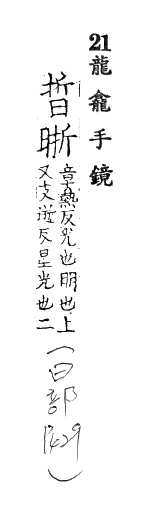 21龍龕手鏡
晢晣
章熱反光也明也上
又支逝反星光也二
(日部P429)